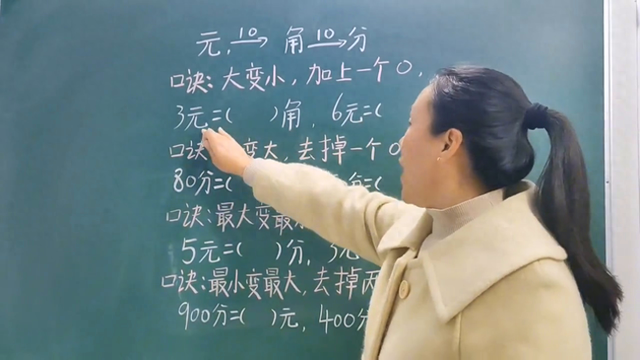 元 10→ 角 10→ 分
口诀:大变小,加上一个0,
3元=( )角,6元=(
口诀 变大,去掉一个0
80分=( 分=(
口诀:最大变最
5元=( )分,3元
口诀:最小变最大,去掉两
900分=( )元,400分